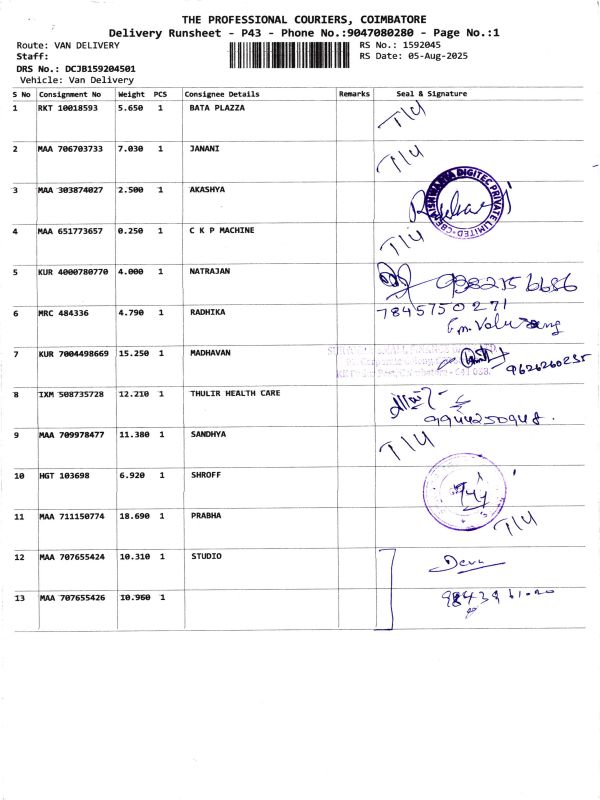 THE PROFESSIONAL COURIERS, COIMBATORE
Delivery Runsheet - P43 - Phone No.:9047080280 - Page No.:1
Route: VAN DELIVERY
RS No.: 1592045
Staff:
RS Date: 05-Aug-2025
DRS No.: DCJB159204501
Vehicle: Van Delivery
S No Consignment No Weight PCS Consignee Details Remarks Seal & Signature
1 RKT 10018593 5.650 1 BATA PLAZZA T/4
2 MAA 706703733 7.030 1 JANANI T/4
3 MAA 303874027 2.500 1 AKASHYA
AISHWARYA DIGITEC PRIVATE LIMITED
4 MAA 651773657 0.250 1 C K P MACHINE T/4
5 KUR 4000780770 4.000 1 NATRAJAN
6 MRC 484336 4.790 1 RADHIKA 7845750271
7 KUR 7004498669 15.250 1 MADHAVAN
8 IXM 508735728 12.210 1 THULIR HEALTH CARE
9944250948.
9 MAA 709978477 11.380 1 SANDHYA T/4
10 HGT 103698 6.920 1 SHROFF
11 MAA 711150774 18.690 1 PRABHA T/4
12 MAA 707655424 10.310 1 STUDIO
13 MAA 707655426 10.960 1